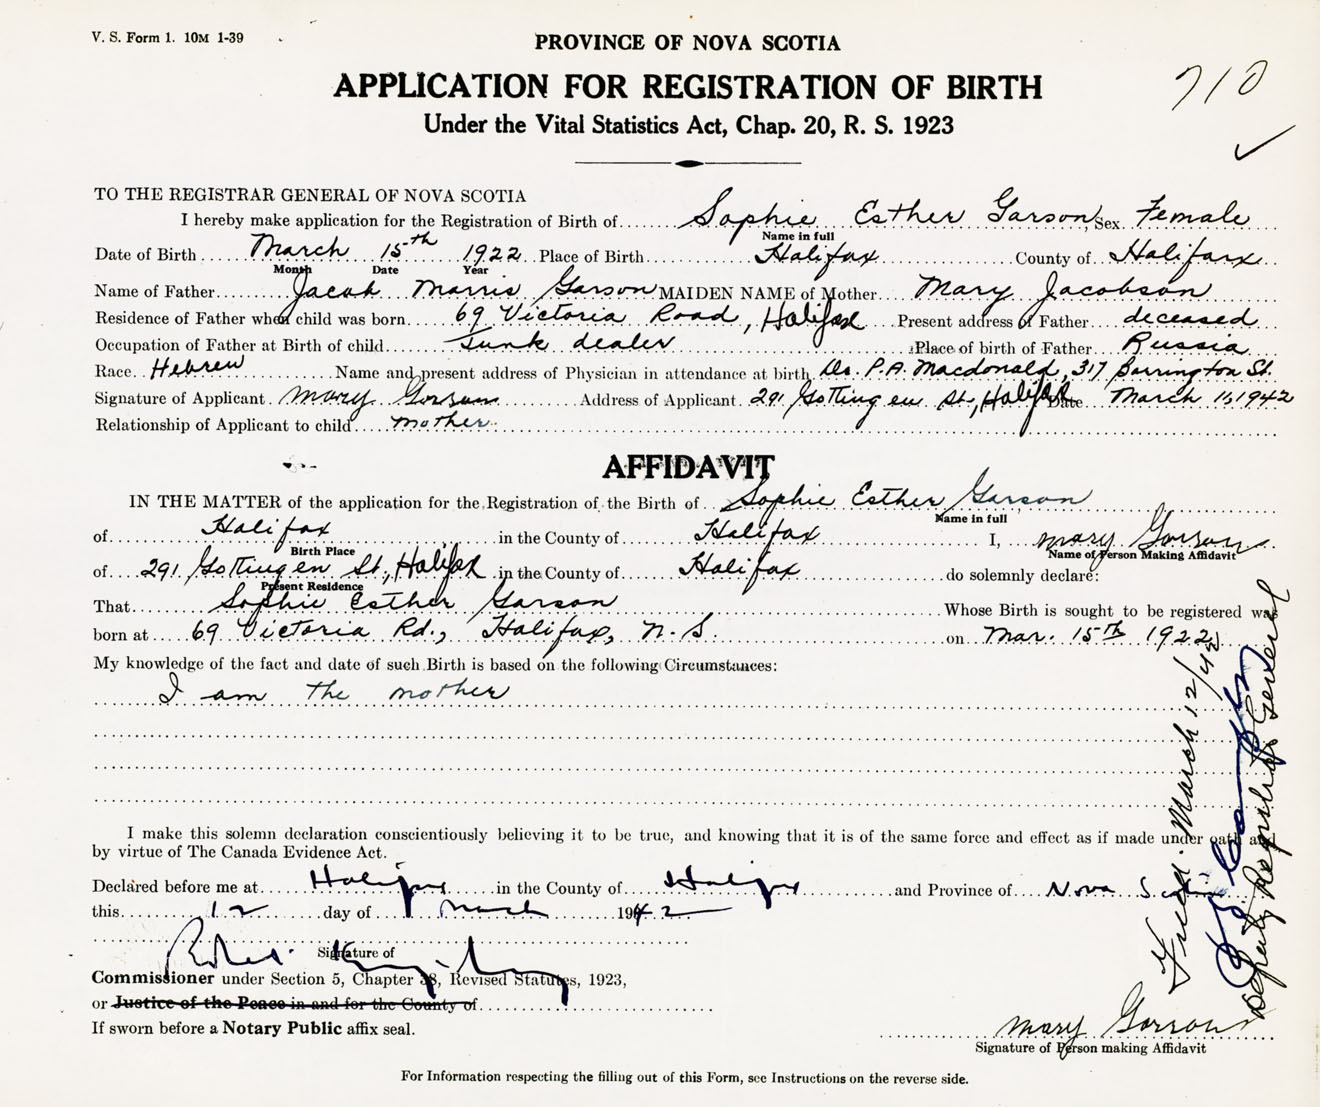 V. S. Form 1. 10M 1-39
PROVINCE OF NOVA SCOTIA
710
APPLICATION FOR REGISTRATION OF BIRTH
Under the Vital Statistics Act, Chap. 20, R. S. 1923
TO THE REGISTRAR GENERAL OF NOVA SCOTIA
I hereby make application for the Registration of Birth of Sophie Esther Garson Sex Female
Name in full
Date of Birth March 15th 1922 Place of Birth Halifax County of Halifax
Month Date Year
Name of Father Jacob Morris Garson MAIDEN NAME of Mother Mary Jacobson
Residence of Father when child was born 69 Victoria Road, Halifax Present address of Father deceased
Occupation of Father at Birth of child Junk dealer Place of birth of Father Russia
Race Hebrew Name and present address of Physician in attendance at birth Dr. P.A. Macdonald, 317 Barrington St.
Signature of Applicant Mary Gorson Address of Applicant 291 Gottingen St, Halifax Date March 1942
Relationship of Applicant to child mother
AFFIDAVIT
IN THE MATTER of the application for the Registration of the Birth of Sophie Esther Garson
Name in full
of Halifax in the County of Halifax I, Mary Gorson
Birth Place Name of Person Making Affidavit
of 291 Gottingen St, Halifax in the County of Halifax do solemnly declare:
Present Residence
That Sophie Esther Garson Whose Birth is sought to be registered was
born at 69 Victoria Rd., Halifax, N.S. on Mar. 15th 1922
My knowledge of the fact and date of such Birth is based on the following Circumstances:
I am the mother
I make this solemn declaration conscientiously believing it to be true, and knowing that it is of the same force and effect as if made under oath and
by virtue of The Canada Evidence Act.
Declared before me at Halifax in the County of Halifax and Province of Nova Scotia
this 12 day of March 1942
Signature of
Commissioner under Section 5, Chapter 38, Revised Statutes, 1923,
or Justice of the Peace in and for the County of
If sworn before a Notary Public affix seal.
Mary Gorson
Signature of Person making Affidavit
For Information respecting the filling out of this Form, see Instructions on the reverse side.
Filed. March 12/42
Deputy Registrar General